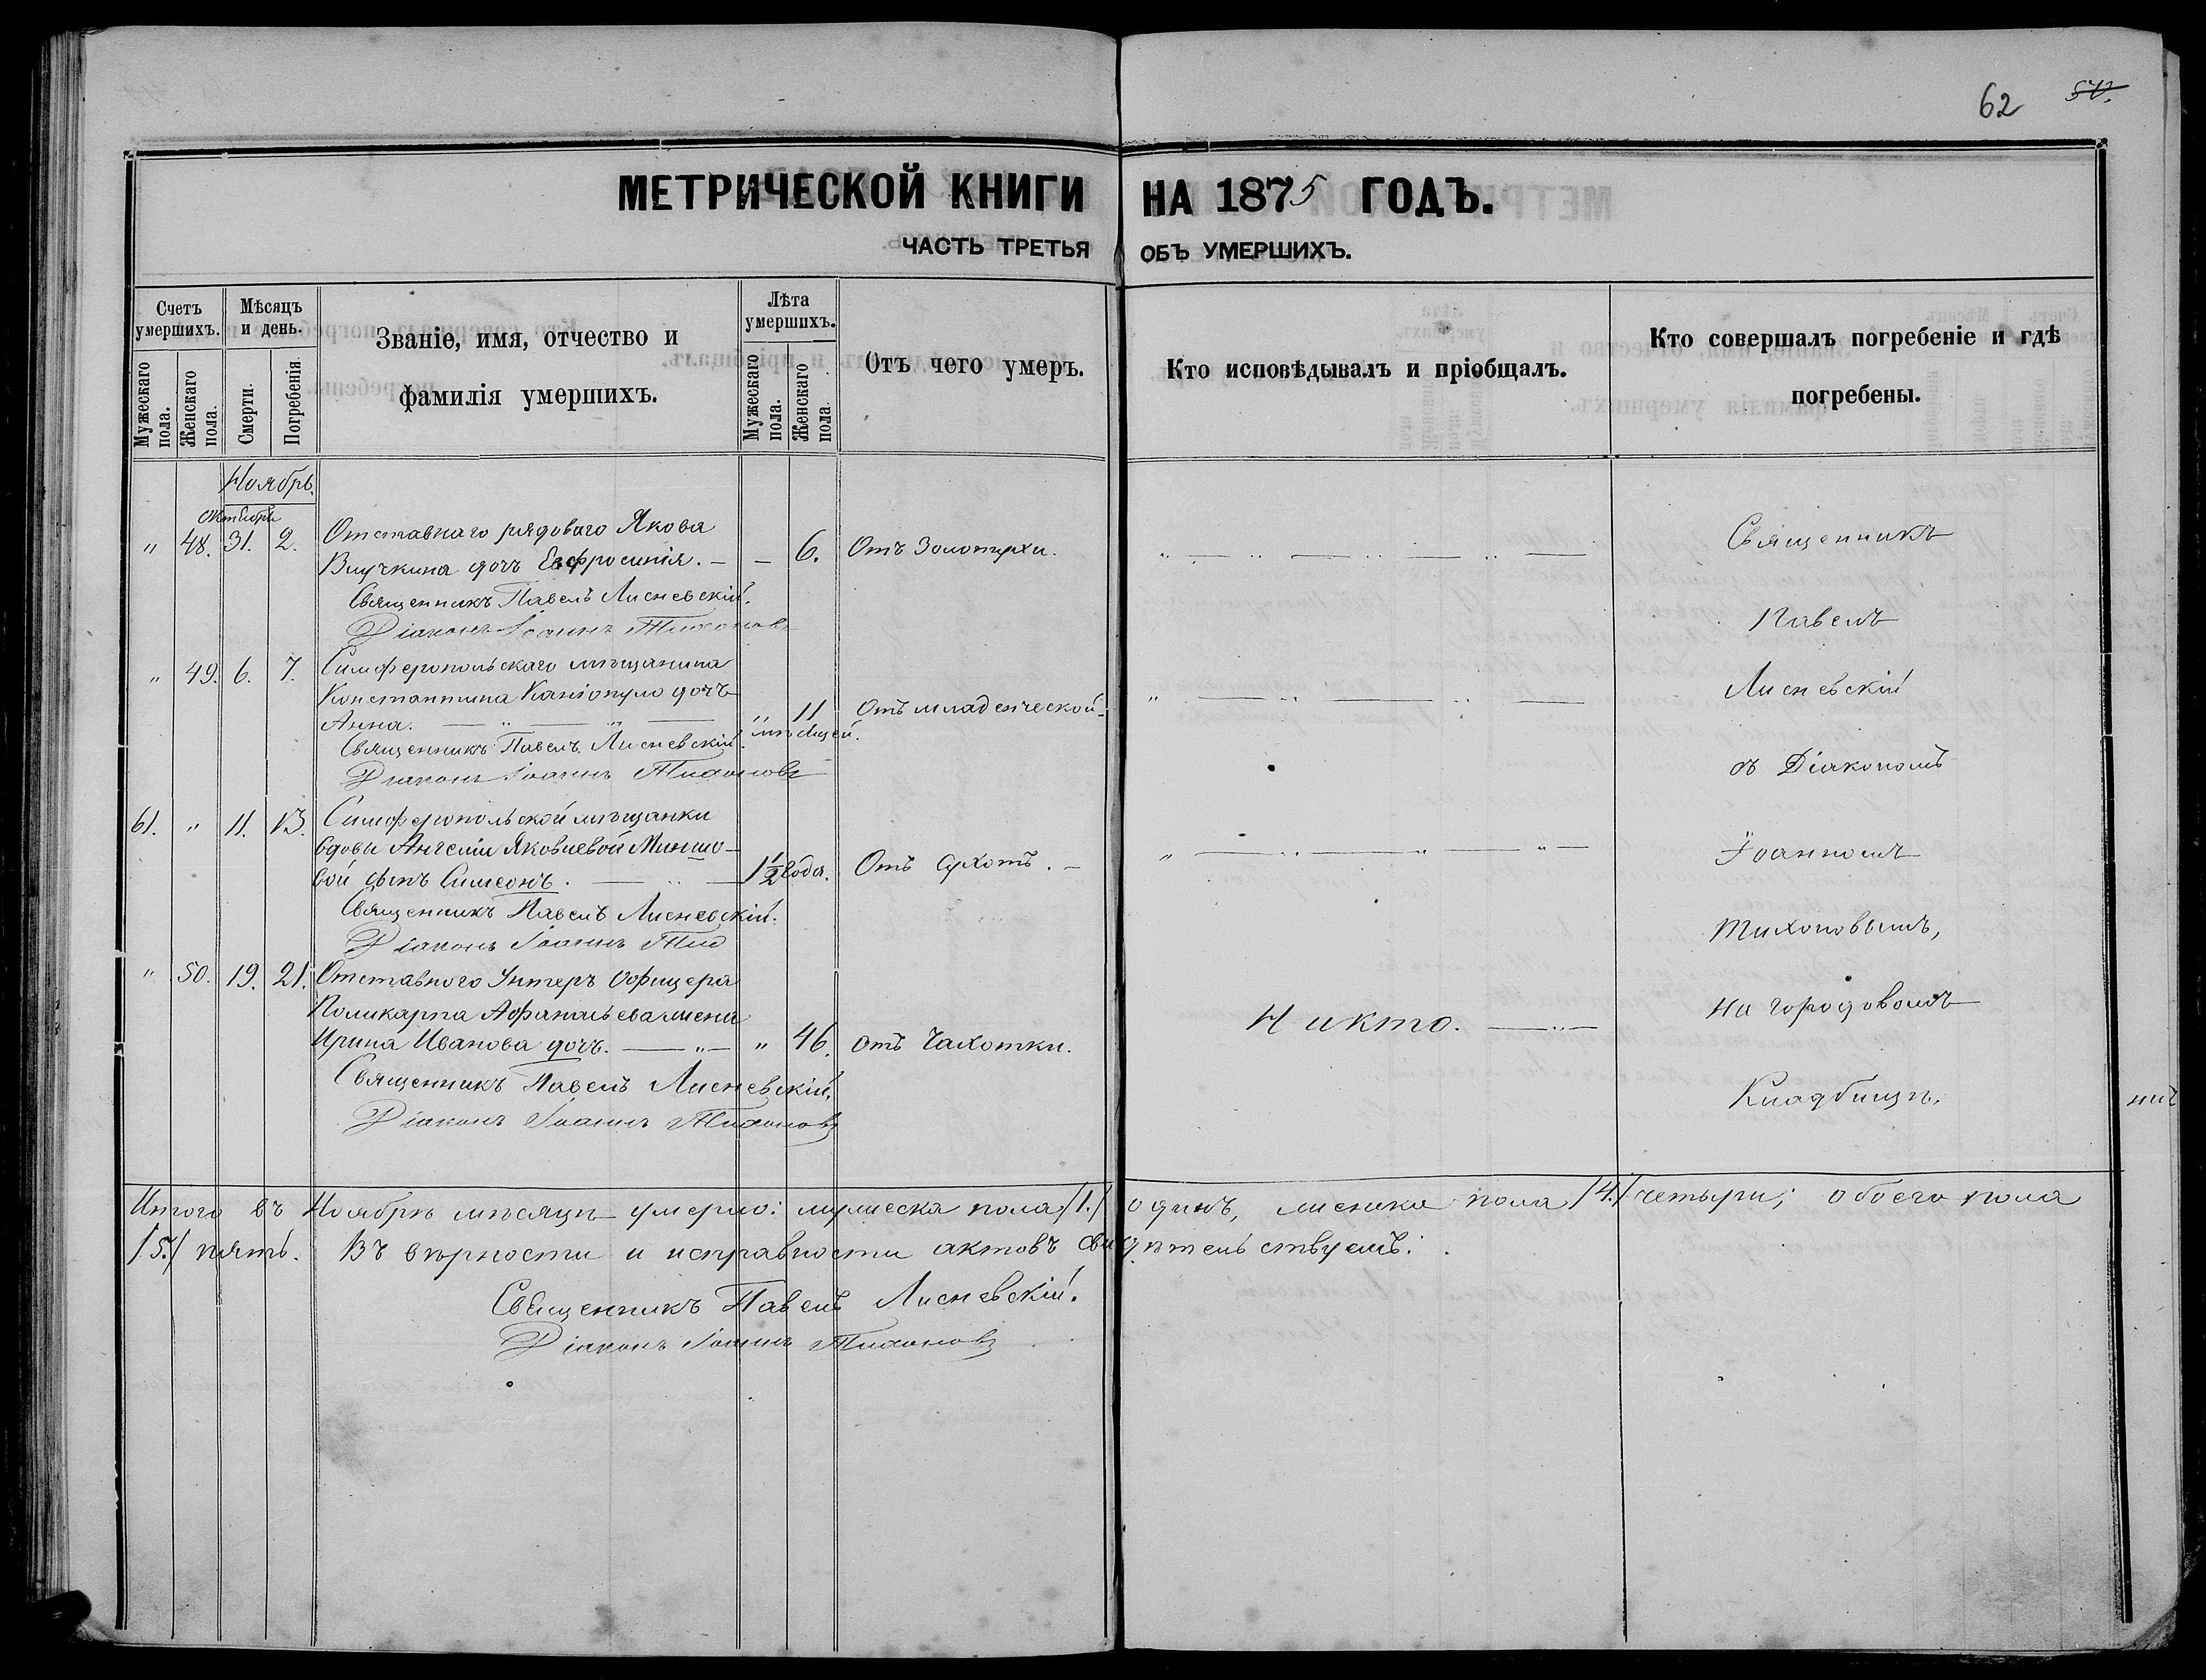 62 57.
МЕТРИЧЕСКОЙ КНИГИ НА 1875 ГОДЪ.
ЧАСТЬ ТРЕТЬЯ ОБЪ УМЕРШИХЪ.
Счетъ умершихъ.
Мужескаго пола.
Женскаго пола.
Мѣсяцъ и день.
Смерти.
Погребенія.
Званіе, имя, отчество и
фамилія умершихъ.
Лѣта умершихъ.
Мужескаго пола.
Женскаго пола.
Отъ чего умеръ.
Кто исповѣдывалъ и пріобщалъ.
Кто совершалъ погребеніе и гдѣ
погребены.
Ноябрь.
октября
„ 48. 31. 2. Отставнаго рядоваго Якова
дочь Евфросинія. — — 6. Отъ Золотухи.
Священникъ Павелъ Лисневскій.
Діаконъ Іоаннъ Тихоновъ
„ 49. 6. 7. Симферопольскаго мѣщанина
Константина дочь
Анна. — „ — „ — „ 11 мѣсяцей. Отъ младенческой.
Священникъ Павелъ Лисневскій.
Діаконъ Іоаннъ Тихоновъ
61. „ 11. 13. Симферопольской мѣщанки
вдовы Яковлевой
сынъ Симеонъ. — „ — 1½ года. Отъ Сухотъ. —
Священникъ Павелъ Лисневскій.
Діаконъ Іоаннъ Тих
„ 50. 19. 21. Отставного Унтеръ Офицера
Поликарпа Афанасьева жена
Ирина Иванова дочь. — „ — „ 46. отъ Чахотки.
Священникъ Павелъ Лисневскій.
Діаконъ Іоаннъ Тихоновъ
Никто. — „ —
Священникъ
Павелъ
Лисневскій
съ Діакономъ
Іоанномъ
Тихоновымъ,
на городовомъ
Кладбищѣ.
Итого въ Ноябрѣ мѣсяцѣ умерло: мужеска пола /1./ одинъ, женска пола /4./ четыри; обоего пола
/5./ пять. Въ вѣрности и исправности актовъ свидѣтельствуемъ:
Священникъ Павелъ Лисневскій.
Діаконъ Іоаннъ Тихоновъ